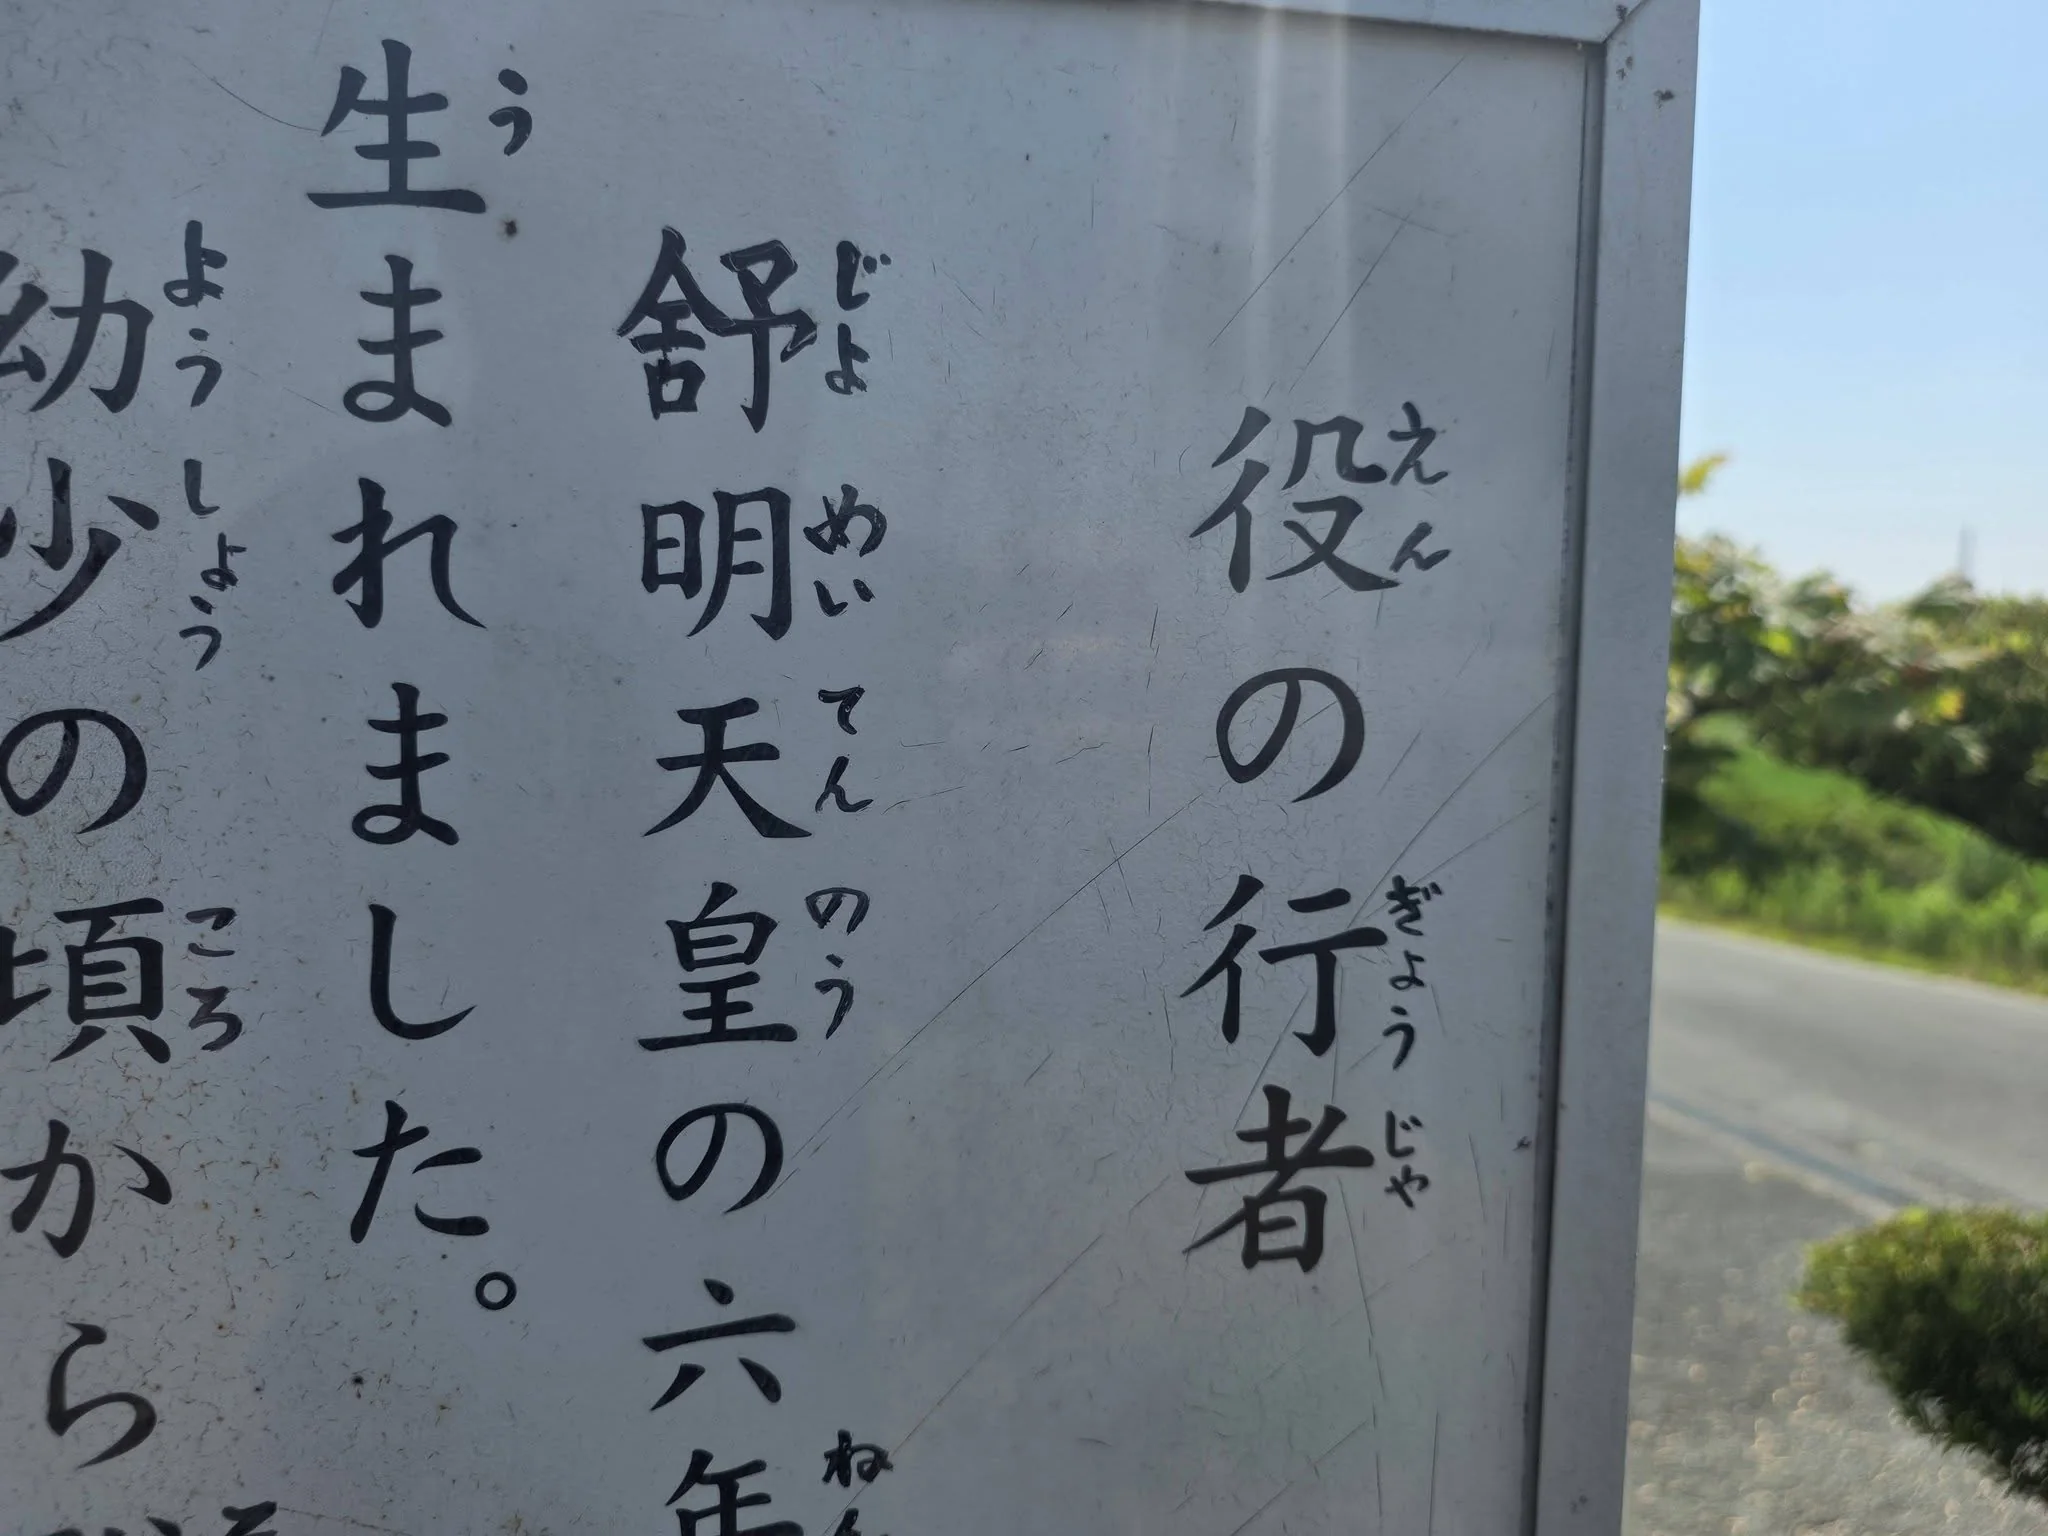 役の行者
えんぎょうじゃ
舒明天皇の六年
じょめいてんのうねん
生まれました。
う
幼少の頃から
ようしょうころ